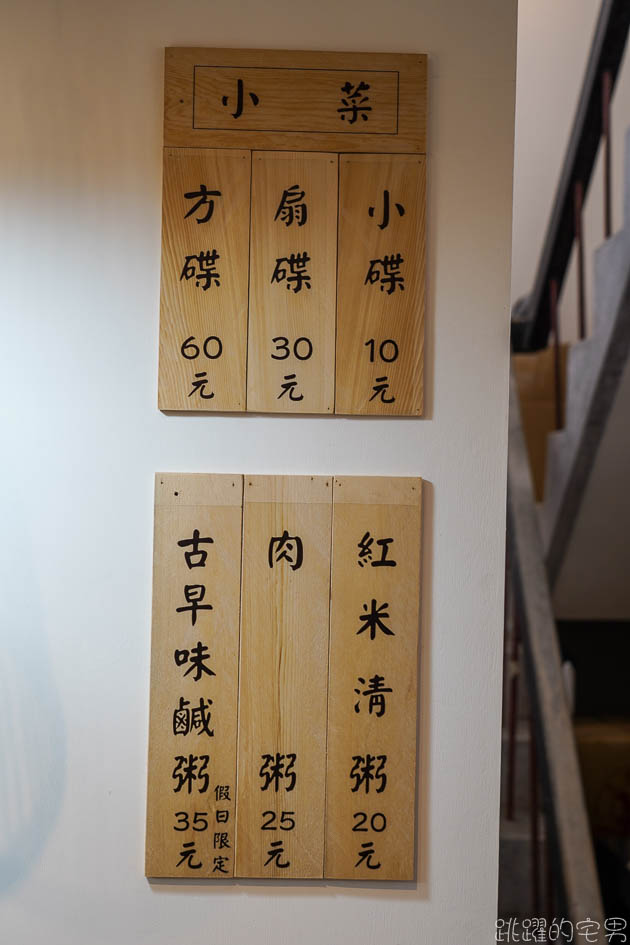 小菜
小碟10元
扇碟30元
方碟60元
紅米清粥20元
肉粥25元
古早味鹹粥35元
假日限定
跳躍的宅男